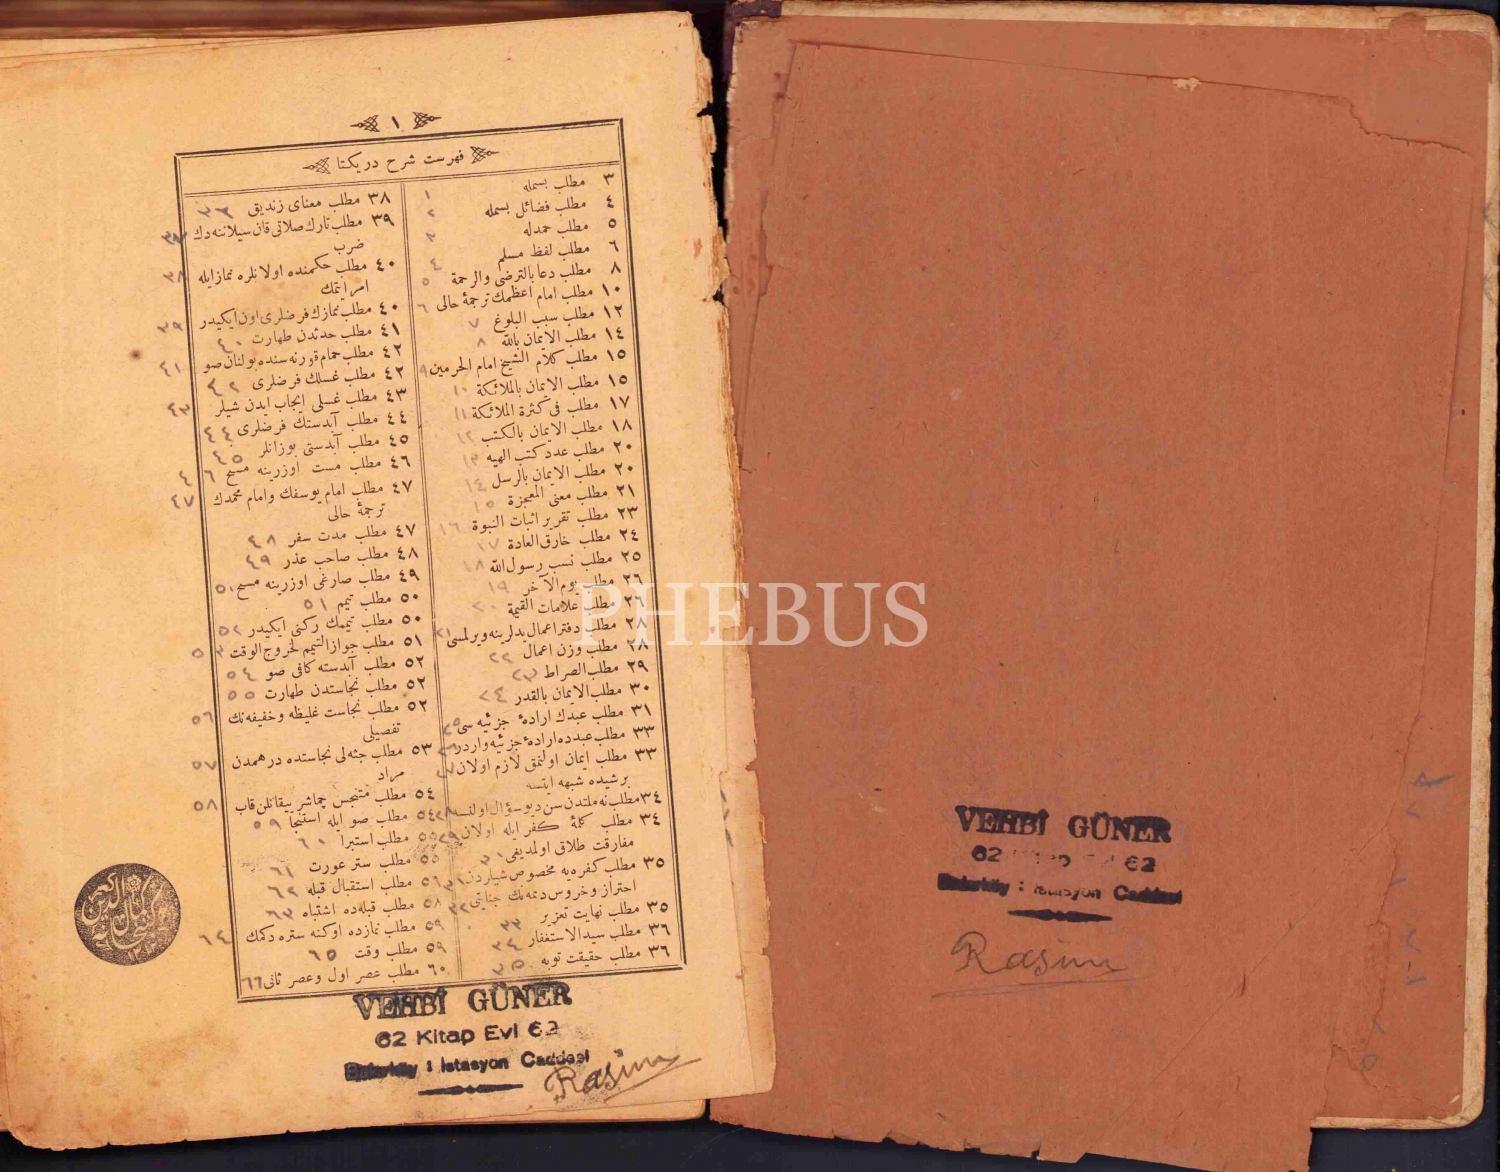 ١
فهرست شرح دريكتا
٣ مطلب بسمله ١
٤ مطلب فضائل بسمله ٢
٥ مطلب حمدله ٣
٦ مطلب لفظ مسلم ٤
٨ مطلب دعا بالترضى والرحمة ٥
١٠ مطلب امام اعظمك ترجمۀ حالى ٦
١٢ مطلب سبب البلوغ ٧
١٤ مطلب الايمان بالله ٨
١٥ مطلب كلام الشيخ امام الحرمين ٩
١٥ مطلب الايمان بالملائكة ١٠
١٧ مطلب فى كثرة الملائكة ١١
١٨ مطلب الايمان بالكتب ١٢
٢٠ مطلب عدد كتب الهيه ١٣
٢٠ مطلب الايمان بالرسل ١٤
٢١ مطلب معنى المعجزة ١٥
٢٣ مطلب تقرير اثبات النبوة ١٦
٢٤ مطلب خارق العادة ١٧
٢٥ مطلب نسب رسول الله ١٨
٢٦ مطلب يوم الآخر ١٩
٢٦ مطلب علامات القيمة ٢٠
٢٨ مطلب دفتر اعمال يدلرينه ويرلمسى ٢١
٢٨ مطلب وزن اعمال ٢٢
٢٩ مطلب الصراط ٢٣
٣٠ مطلب الايمان بالقدر ٢٤
٣١ مطلب عبدك ارادۀ جزئيه سى ٢٥
٣٣ مطلب عبدده ارادۀ جزئيه واردر ٢٦
٣٣ مطلب ايمان اولنمق لازم اولان ٢٧
برشيده شبهه ايتسه
٣٤ مطلب نه ملتدن سن ديو سؤال اولنسه ٢٨
٣٤ مطلب كلمۀ كفر ايله اولان ٢٩
مفارقت طلاق اولمديغى ٣٠
٣٥ مطلب كفره يه مخصوص شيلردن ٣١
احتراز و خروس دمه نك جنايتى
٣٥ مطلب نهايت تعزير ٣٣
٣٦ مطلب سيد الاستغفار ٣٤
٣٦ مطلب حقيقت توبه ٣٥
٣٨ مطلب معناى زنديق ٣٦
٣٩ مطلب تارك صلاتى قان سيلاننه دك
ضرب
٤٠ مطلب حكمنده اولانلره نماز ايله ٣٨
امر ايتمك
٤٠ مطلب نمازك فرضلرى اون ايكيدر ٣٩
٤١ مطلب حدثدن طهارت ٤٠
٤٢ مطلب حمام قورنه سنده بولنان صو ٤١
٤٢ مطلب غسلك فرضلرى ٤٢
٤٣ مطلب غسلى ايجاب ايدن شيلر ٤٣
٤٤ مطلب آبدستك فرضلرى ٤٤
٤٥ مطلب آبدستى بوزانلر ٤٥
٤٦ مطلب مست اوزرينه مسح ٤٦
٤٧ مطلب امام يوسفك وامام محمدك ٤٧
ترجمۀ حالى
٤٧ مطلب مدت سفر ٤٨
٤٨ مطلب صاحب عذر ٤٩
٤٩ مطلب صارغى اوزرينه مسح ٥٠
٥٠ مطلب تيمم ٥١
٥٠ مطلب تيممك ركنى ايكيدر ٥٢
٥١ مطلب جواز التيمم لخروج الوقت ٥٣
٥٢ مطلب آبدسته كافى صو ٥٤
٥٢ مطلب نجاستدن طهارت ٥٥
٥٢ مطلب نجاست غليظه و خفيفه نك ٥٦
تفصيلى
٥٣ مطلب جثه لى نجاستده درهمدن ٥٧
مراد
٥٤ مطلب متنجس چماشر ييقانلن قاب ٥٨
٥٤ مطلب صو ايله استنجا ٥٩
٥٥ مطلب استبرا ٦٠
٥٥ مطلب ستر عورت ٦١
٥٦ مطلب استقبال قبله ٦٢
٥٨ مطلب قبله ده اشتباه ٦٣
٥٩ مطلب نمازده اوكنه ستره دكمك ٦٤
٥٩ مطلب وقت ٦٥
٦٠ مطلب عصر اول وعصر ثانى ٦٦
VEHBİ GÜNER
62 Kitap Evi 62
İstasyon Caddesi
Rasim
PHEBUS
VEHBİ GÜNER
62 Kitap Evi 62
: İstasyon Caddesi
Rasim